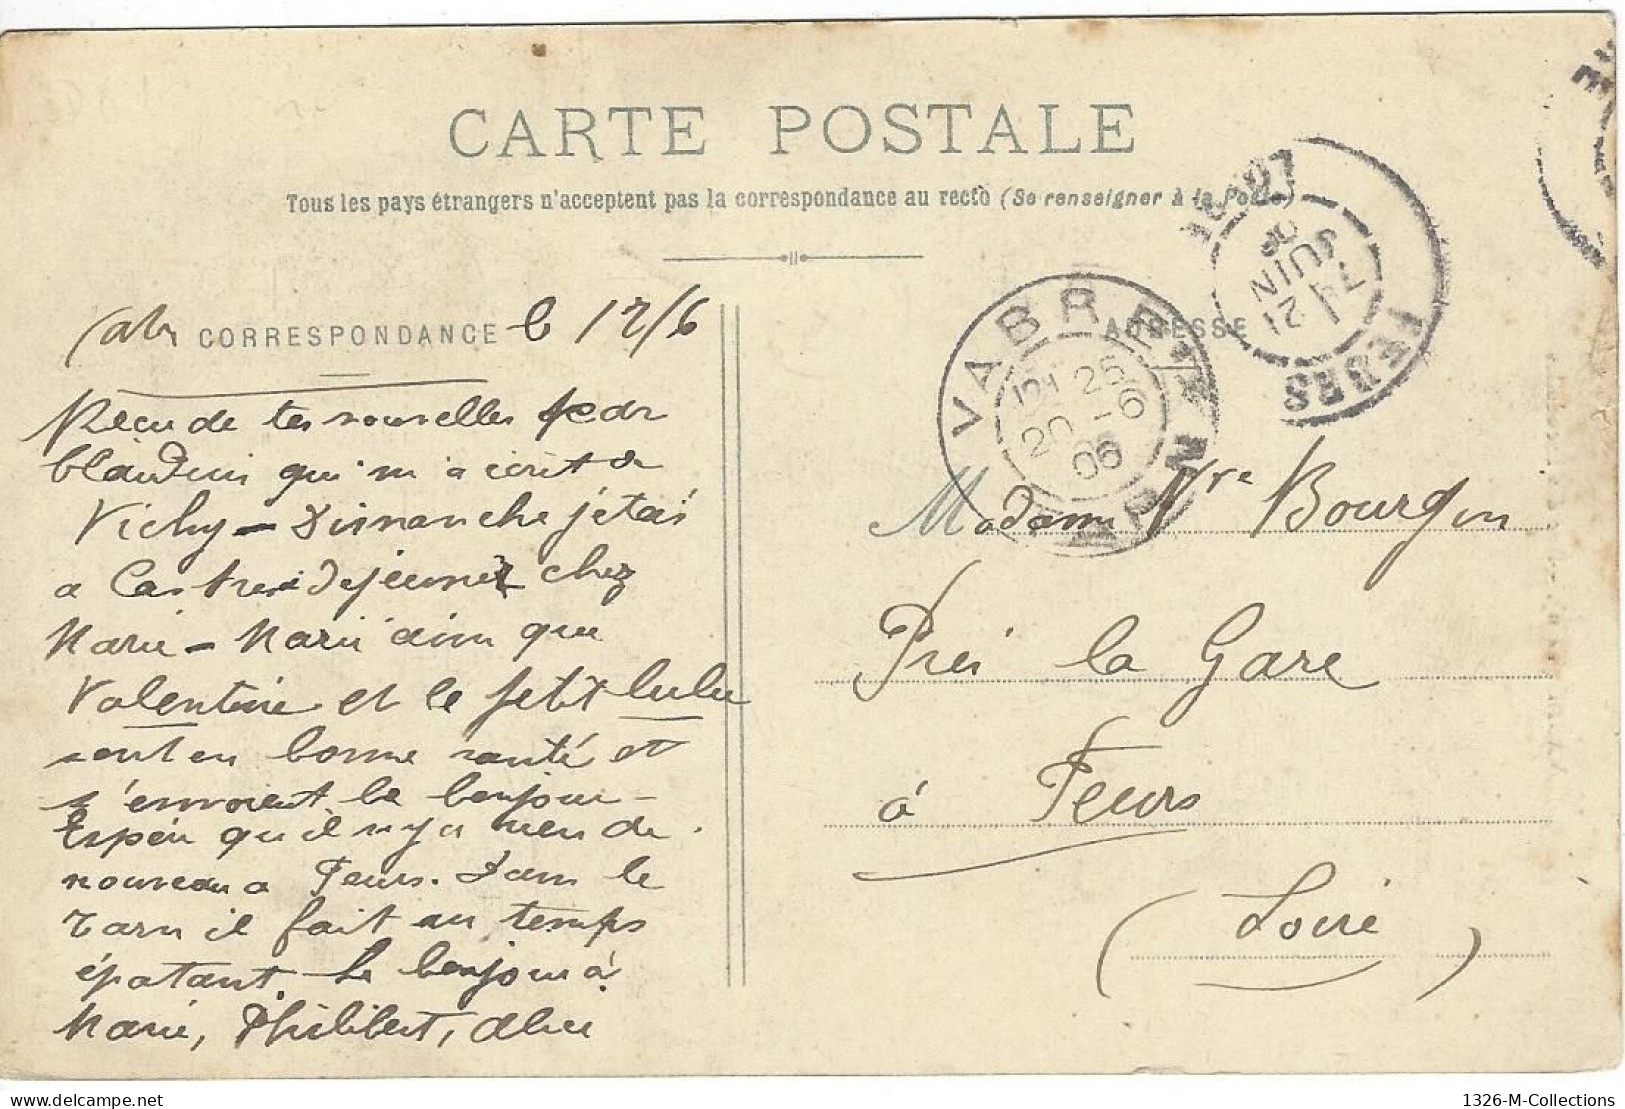 CARTE POSTALE
Tous les pays étrangers n'acceptent pas la correspondance au recto (Se renseigner à la Poste)
CORRESPONDANCE
le 12/6
ADRESSE
Recu de tes nouvelles par
blaudun qui m'a écrit de
Vichy - Dimanche j'étais
a Castres dejeuner chez
Marie - Marie ainsi que
Valentine et le petit lulu
sont en bonne santé et
s'envoient le bonjour -
Espère qu'il n'y a rien de
nouveau a Feurs. Dans le
Tarn il fait un temps
épatant. Le bonjour à
Marie, Philibert,
Madame Vve Bourgin
Près la Gare
à Feurs
(Loire)
VABRE TARN
12H 25
20 -6
06
21
JUIN
06
FEURS
1326-M-Collections